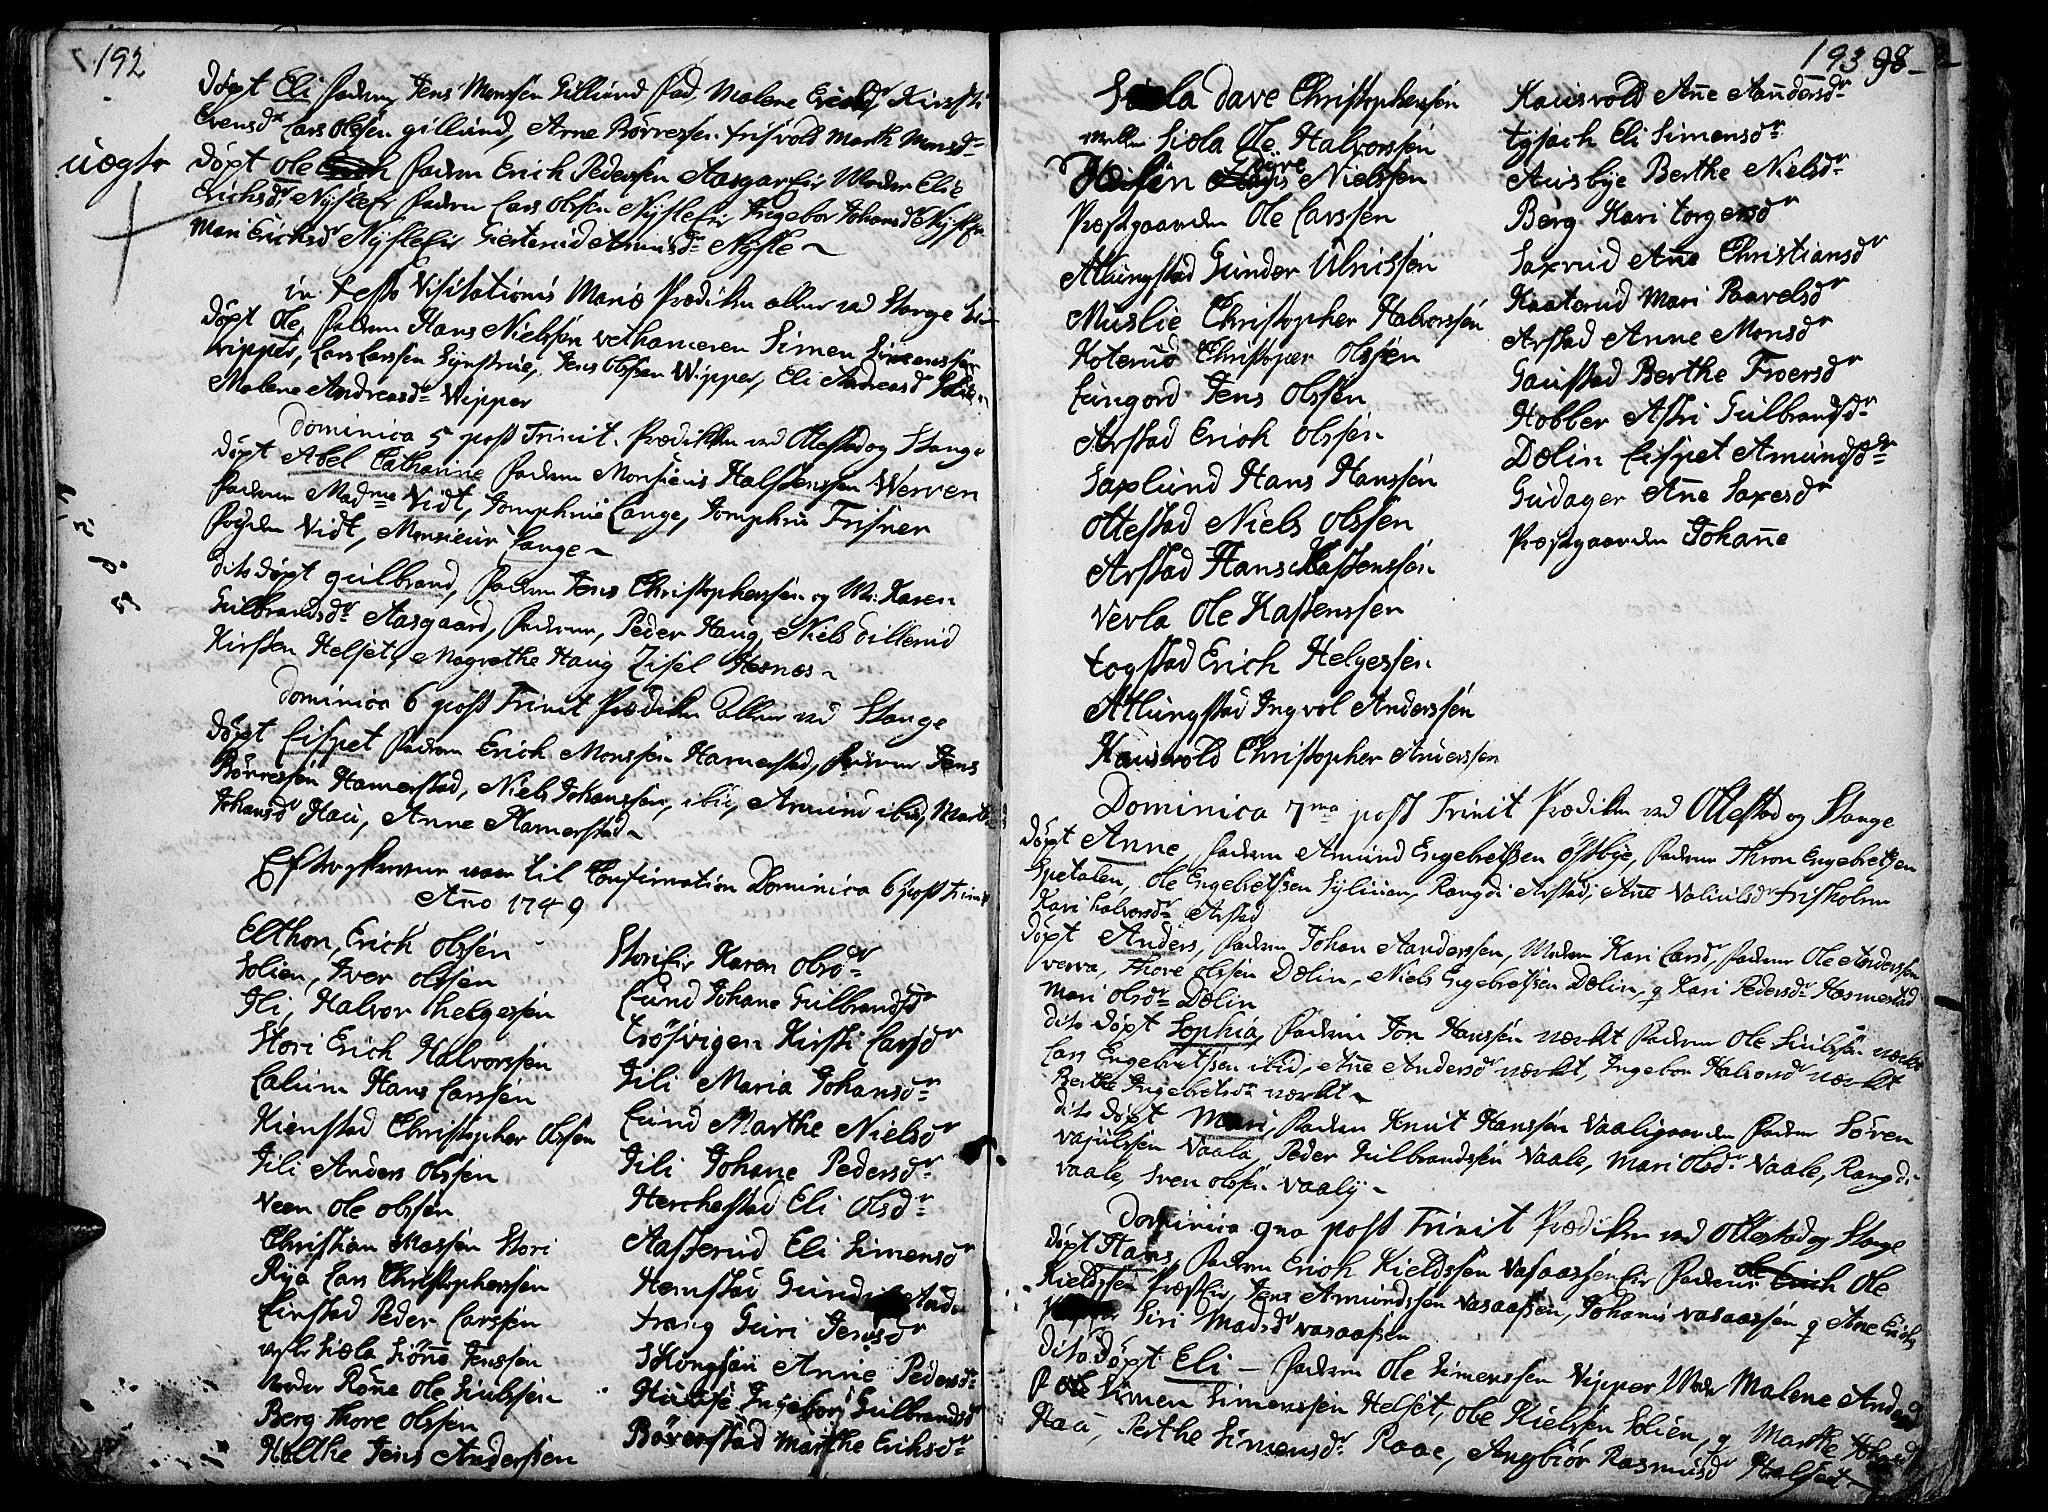 192
Döpt Eli Faderen Jens Monssen Gillund Fad. Malene Kirsti
Evensdr Lars Olssen gillund, Arne Börressen frisvold Marth Monsdr
uægte
Döpt Ole Faderen Erich Pederssen Aasgar Moder Eli
Erichsdr Nÿsle Fadern Lars Olssen Nÿsle Ingebor Johansdr
Mari Erichsdr Nÿsle Giertrud Amunsdr Nÿsle
in festo Visitationis Mariæ Prædiken allene ved Stange
Döpt Ole, Faderen Hans Nielssen vethameren Simen Simenssen
vipper, Lars Larssen Synstrue, Jens Olssen Wipper, Eli Andreasdr
Malene Andreasdr Wipper
Dominica 5 post Trinit. Prædiken ved Ottestad og Stange
döpt Abel Cathanne Faderen Monsieur Half Jenssen Werven
Fadern Madme Vidt, Jomphrue Lange, Jomphrue Frisner
Vidt, Monsieur Lange
dito döpt gulbrand, Faderen Jens Christophersen og M: Karen
Gulbrandsdr Aasgaard, Fadern, Peder Haug, Niels dillerud
Kirsten Helset, Magrethe Haug Zisel Hesnes
Dominica 6 post Trinit Prædiken allene ved Stange
döpt Lispet Faderen Erich Monssen Hamerstad, Jens
Börressen Hamerstad, Niels Johanssen, ibid, Amund ibid, Marte
Johansdr Hau, Anne Hamerstad
Efterskrevne var til Confirmation Dominica 6 post trinit
Año 1749
Elthon, Erich Olssen
Solien, Iver Olssen
Ili, Halvor helgessen
Stori Erich Halvorssen
Calum Hans Larssen
Kienstad Christopher Olssen
Ili Anders Olssen
Veen Ole Olssen
Christian Massen Stori
Rÿa Lars Christopherssen
Linstad Peder Larssen
Siöla Siöne Jenssen
Nordre Röne Ole Siulssen
Berg Thore Olssen
Holthe Jens Anderssen
Stori Karen Olsdr
Lund Johane Gulbrandsdr
trösvigen Kirsti Larsdr
Ili Maria Johansdr
Lund Marthe Nielsdr
Ili Johane Pedersdr
Herchestad Eli Olsdr
Aasserud Eli Simensdr
Hemstad
trang Guri Jensdr
Anne Pedersdr
Ingebor Gulbrandsdr
Marthe Eriksdr
193 98
Siöla Dave Christopherssen
mellem Siöla Ole Halvorssen
Nielssen
Præstgaarden Ole Larssen
Atlungstad Gunder Ulricssen
Muslie Christopher Halvorssen
Hoterud Christoper Olssen
Lungord Jens Olssen
Arstad Erich Olssen
Saxlund Hans Hanssen
Ottestad Niels Olssen
Arstad Hans Kastenssen
Verla Ole Kastenssen
togstad Erich Helgessen
Atlungstad Ingvol Anderssen
Hausvold Christopher Anderssen
Hausvold Añe Aandersdr
tysach Eli Simensdr
Ausbÿe Berthe Nielsdr
Berg Kari torgersdr
Saxrud Añe Christiansdr
Kaaterud Mari Paavelsdr
Arstad Anne Monsdr
Gaustad Berthe Froersdr
Hobber Assri Gulbrandsdr
Dælin Lispet Amundsdr
Gudager Añe Saxesdr
Præstgaarden Johañe
Dominica 7ma post Trinit Prædiken ved Ottestad og Stange
döpt Anne, Faderen Amund Engebretssen östbÿe, Fadern Thron Engebretssen
Spetalen, Ole Engebretssen Sÿlluan, Rangdi Arstad, Añe frisholm
Kari halvorsdr Arstad
döpt Anders, Faderen Johan Aanderssen, Moderen Kari Larsdr, Fadern Ole Anderssen
verva, Thore Olssen Dælin, Niels Engebretssen Dælin, og Kari Pedersdr Hosmestad
Mari Olsdr Dælin
dito döpt Sophia, Faderen Jon Hanssen nærkt Fadern Ole Siulssen nærkt
Lars Engebretssen ibid, Añe Andersdr nærkt, Ingebor Halvorsdr nærkt
Berthe Ingebretsdr nærkt
dito döpt Mari, Faderen Knut Hanssen Vaaligaarden Fadern Sören
vajulssen Vaala, Peder Gulbrandssen Vaale, Mari Olsdr Vaale, Rangdi
vaale, Sven Olssen vaalÿ
Dominica 9na post Trinit Prædiken ved Ottestad og Stange
döpt Hans, Faderen Erich Kieldssen Vasaassen Fadern Ole
Kieldssen Jens Amundssen Vasaassen, Johans vasaassen og Ane
Siri Madsdr vasaassen
dito döpt Eli – Faderen Ole Simenssen Vipper Moder Malene
Simen Simenssen Helset, Ole Kielssen Solien, og Marthe
Hau, Berthe Simensdr Raae, Angbiör Rasmusdr Helset